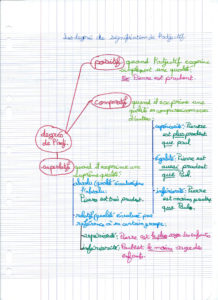 Les degrés de signification de l'adjectif
positif quand l'adjectif exprime
simplement une qualité:
Ex: Pierre est prudent.
comparatif quand il exprime une
qualité en comparaison avec
d'autres:
degrés
de l'adj.
supériorité: Pierre
est plus prudent
que paul
égalité: Pierre est
aussi prudent
que Paul.
infériorité: Pierre
est moins prudent
que Paul.
superlatif quand il exprime une
suprême qualité:
absolu: qualité
l'absolu:
Pierre est prudent.
relatif: qualité par
référence à un certain groupe:
supériorité: Pierre est le plus sage des enfants
infériorité: Paul est le moins sage des
enfants.